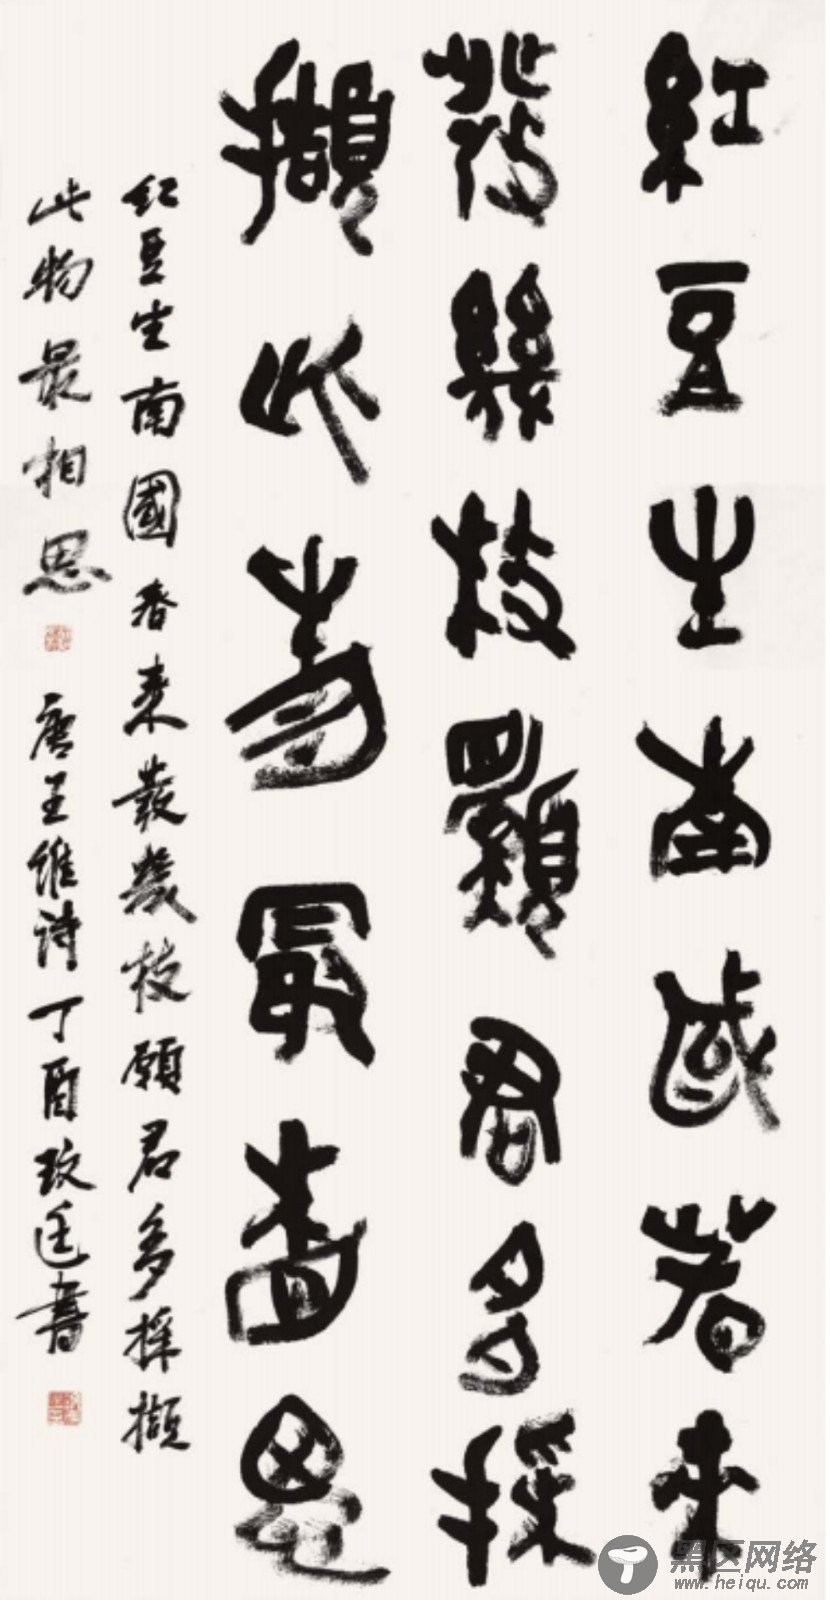 紅豆生南國春來
發幾枝願君多採
擷此物最相思
紅豆生南國春來發幾枝願君多採擷
此物最相思 唐王維詩丁酉玫廷書
黑区网络
www.heiqu.com